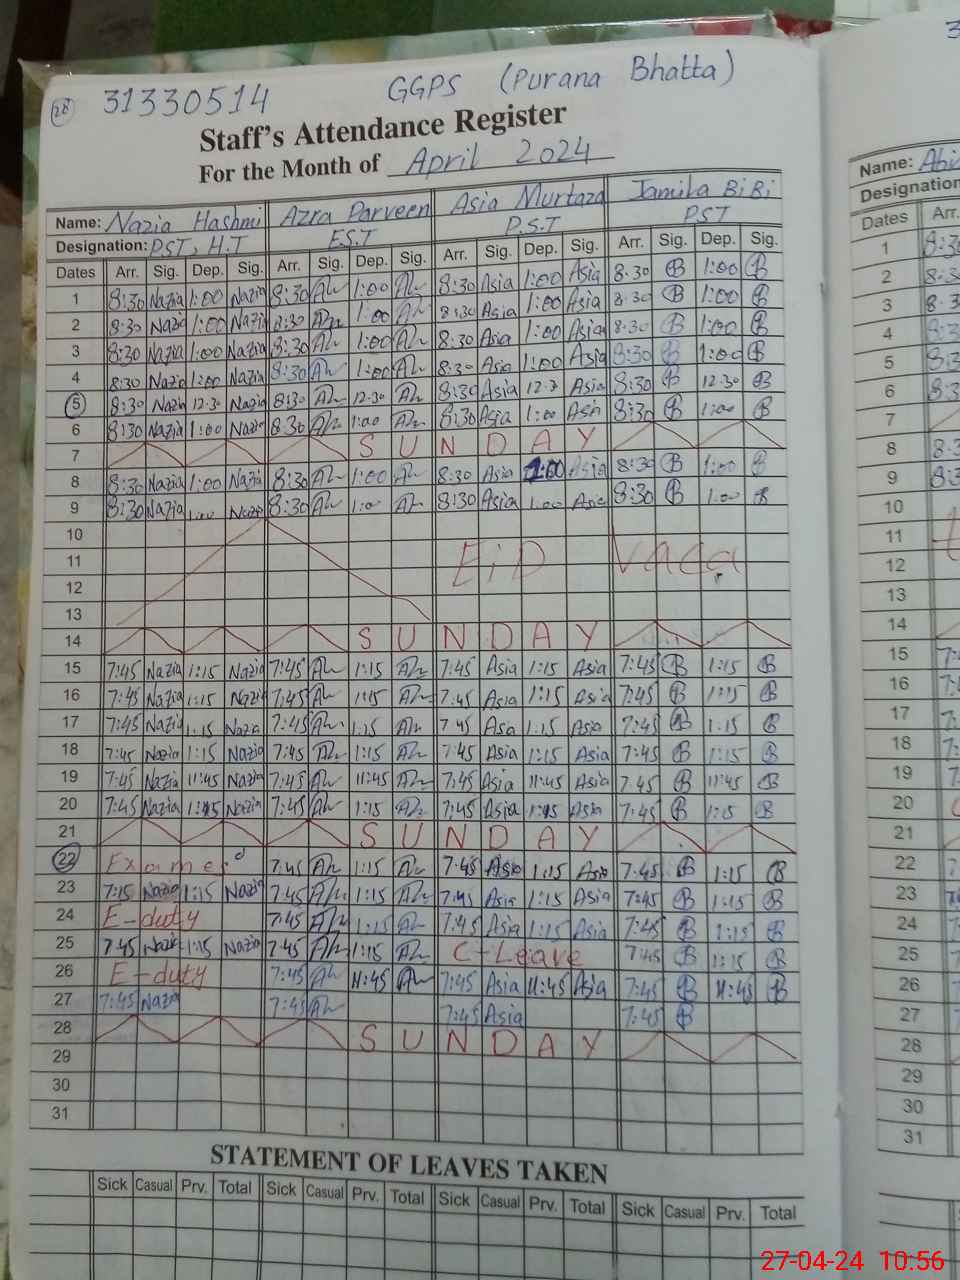 28 31330514 GGPS (Purana Bhatta)
Staff's Attendance Register
For the Month of April 2024
Name: Nazia Hashmi Azra Parveen Asia Murtaza Jamila BiBi
Designation: PST, H.T E.S.T P.S.T PST
Dates Arr. Sig. Dep. Sig. Arr. Sig. Dep. Sig. Arr. Sig. Dep. Sig. Arr. Sig. Dep. Sig.
1 8:30 Nazia 1:00 Nazia 8:30 1:00 8:30 Asia 1:00 Asia 8:30 B 1:00 B
2 8:30 Nazia 1:00 Nazia 8:30 1:00 8:30 Asia 1:00 Asia 8:30 B 1:00 B
3 8:30 Nazia 1:00 Nazia 8:30 1:00 8:30 Asia 1:00 Asia 8:30 B 1:00 B
4 8:30 Nazia 1:00 Nazia 8:30 1:00 8:30 Asia 1:00 Asia 8:30 B 1:00 B
5 8:30 Nazia 12:30 Nazia 8:30 12:30 8:30 Asia Asia 8:30 B 12:30 B
6 8:30 Nazia 1:00 Nazia 8:30 1:00 8:30 Asia 1:00 Asia 8:30 B 1:00 B
7 SUNDAY
8 8:30 Nazia 1:00 Nazia 8:30 1:00 8:30 Asia 1:00 Asia 8:30 B 1:00 B
9 8:30 Nazia 1:00 Nazia 8:30 1:00 8:30 Asia 1:00 Asia 8:30 B 1:00 B
10
11 EiD Vaca
12
13
14 SUNDAY
15 7:45 Nazia 1:15 Nazia 7:45 1:15 7:45 Asia 1:15 Asia 7:45 B 1:15 B
16 7:45 Nazia 1:15 Nazia 7:45 1:15 7:45 Asia 1:15 Asia 7:45 B 1:15 B
17 7:45 Nazia 1:15 Nazia 7:45 1:15 7:45 Asia 1:15 Asia 7:45 B 1:15 B
18 7:45 Nazia 1:15 Nazia 7:45 1:15 7:45 Asia 1:15 Asia 7:45 B 1:15 B
19 7:45 Nazia 11:45 Nazia 7:45 11:45 7:45 Asia 11:45 Asia 7:45 B 11:45 B
20 7:45 Nazia 1:15 Nazia 7:45 1:15 7:45 Asia 1:15 Asia 7:45 B 1:15 B
21 SUNDAY
22 7:45 1:15 7:45 Asia 1:15 Asia 7:45 B 1:15 B
23 7:15 Nazia 1:15 Nazia 7:45 1:15 7:45 Asia 1:15 Asia 7:45 B 1:15 B
24 E-duty 7:45 1:15 7:45 Asia 1:15 Asia 7:45 B 1:15 B
25 7:45 Nazia 1:15 Nazia 7:45 1:15 C-Leave 7:45 B 1:15 B
26 E-duty 7:45 11:45 7:45 Asia 11:45 Asia 7:45 B 11:45 B
27 7:45 Nazia 7:45 7:45 Asia 7:45 B
28 SUNDAY
29
30
31
STATEMENT OF LEAVES TAKEN
Sick Casual Prv. Total Sick Casual Prv. Total Sick Casual Prv. Total Sick Casual Prv. Total
Name:
Designation
Dates Arr.
1
2
3
4
5
6
7
8
9
10
11
12
13
14
15
16
17
18
19
20
21
22
23
24
25
26
27
28
29
30
31
27-04-24 10:56